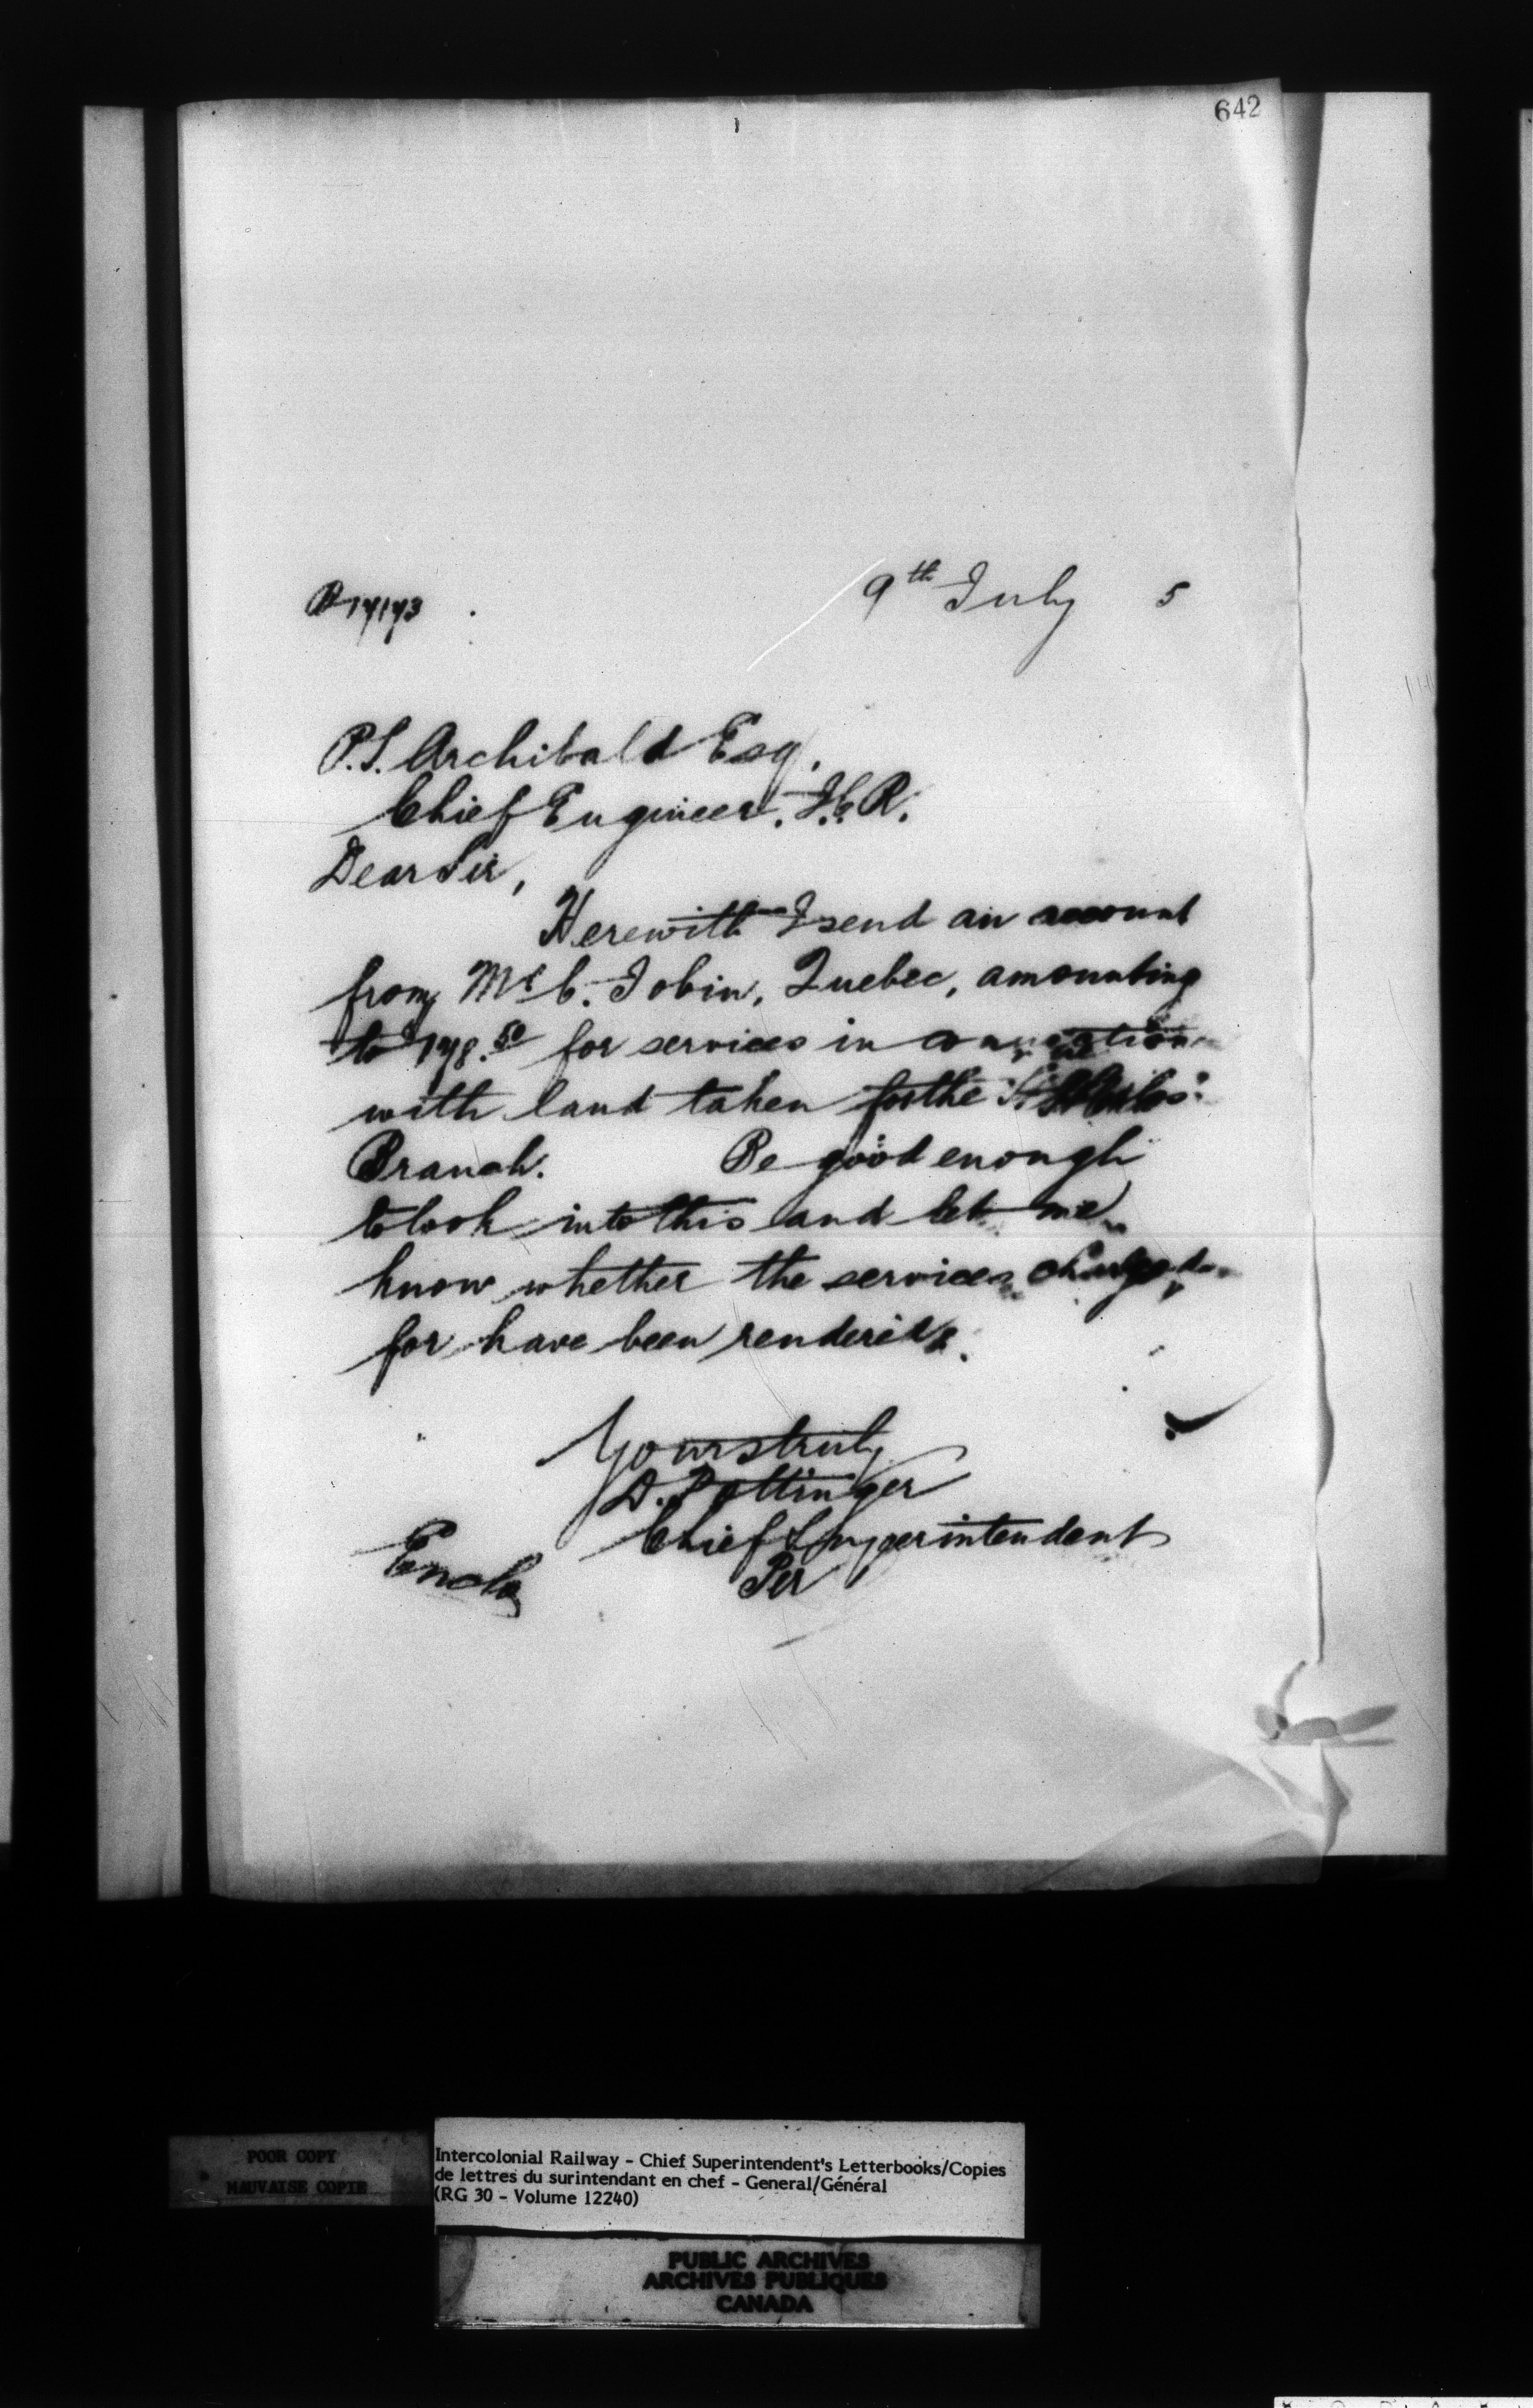 642
9th July 5
P.S. Archibald Esq.
Chief Engineer. I.C.R.
Dear Sir,
Herewith I send an account
from Mr C. Tobin, Quebec, amounting
to 178.50 for services in connection
with land taken for the St Charles
Branch. Be good enough
to look into this and let me
know whether the services charged
for have been rendered.
Yours truly
D. Pottinger
Chief Superintendent
Per
Encls
POOR COPY
MAUVAISE COPIE
Intercolonial Railway - Chief Superintendent's Letterbooks/Copies
de lettres du surintendant en chef - General/Général
(RG 30 - Volume 12240)
PUBLIC ARCHIVES
ARCHIVES PUBLIQUES
CANADA